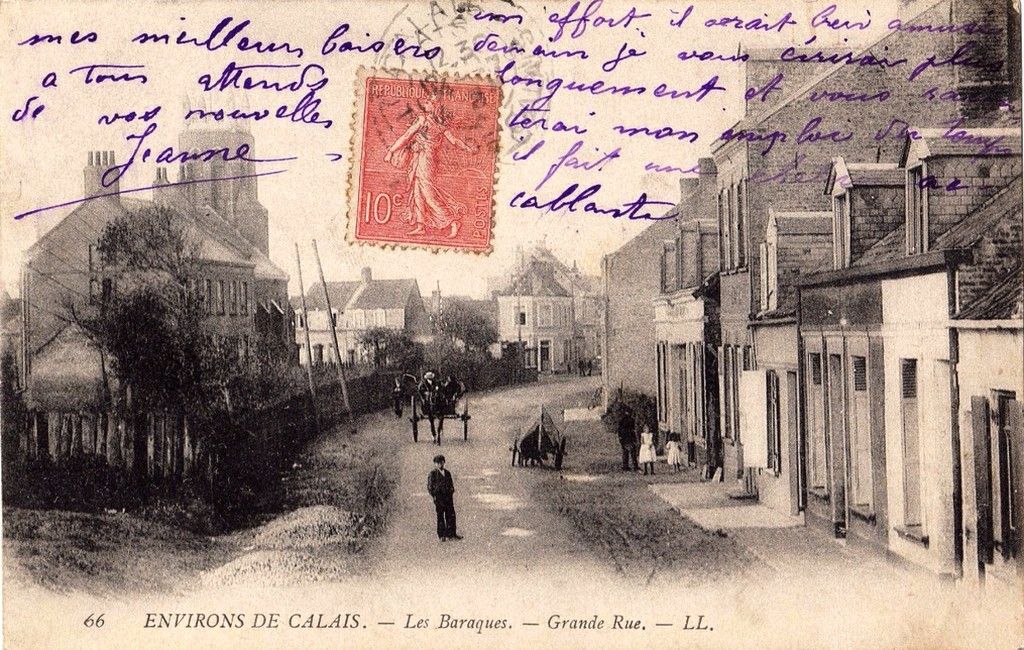 un effort, il serait bien
mes meilleurs baisers demain je vous écrirai plus
a tous attends longuement et vous
de vos nouvelles terai mon emploi du temps
Jeanne il fait une
accablante
REPUBLIQUE FRANÇAISE
10c
POSTES
66 ENVIRONS DE CALAIS. — Les Baraques. — Grande Rue. — LL.